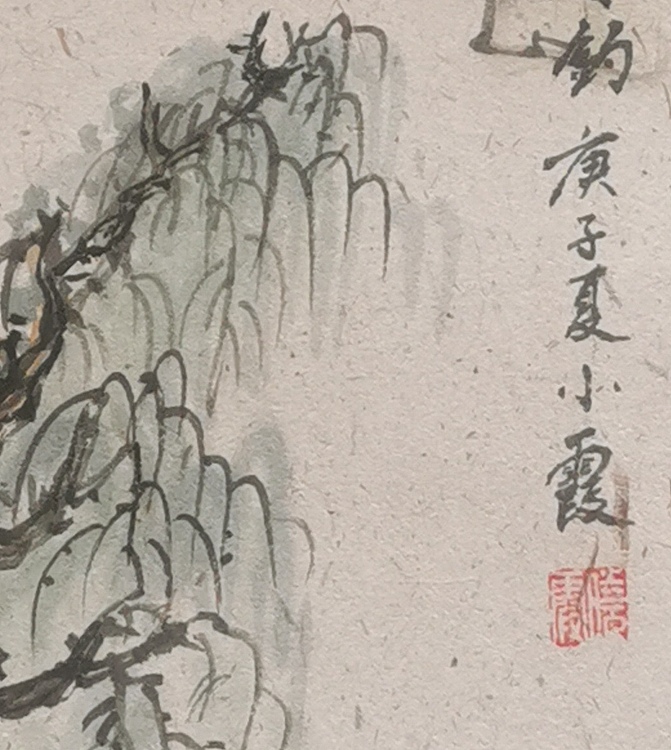 钓庚子夏小霞